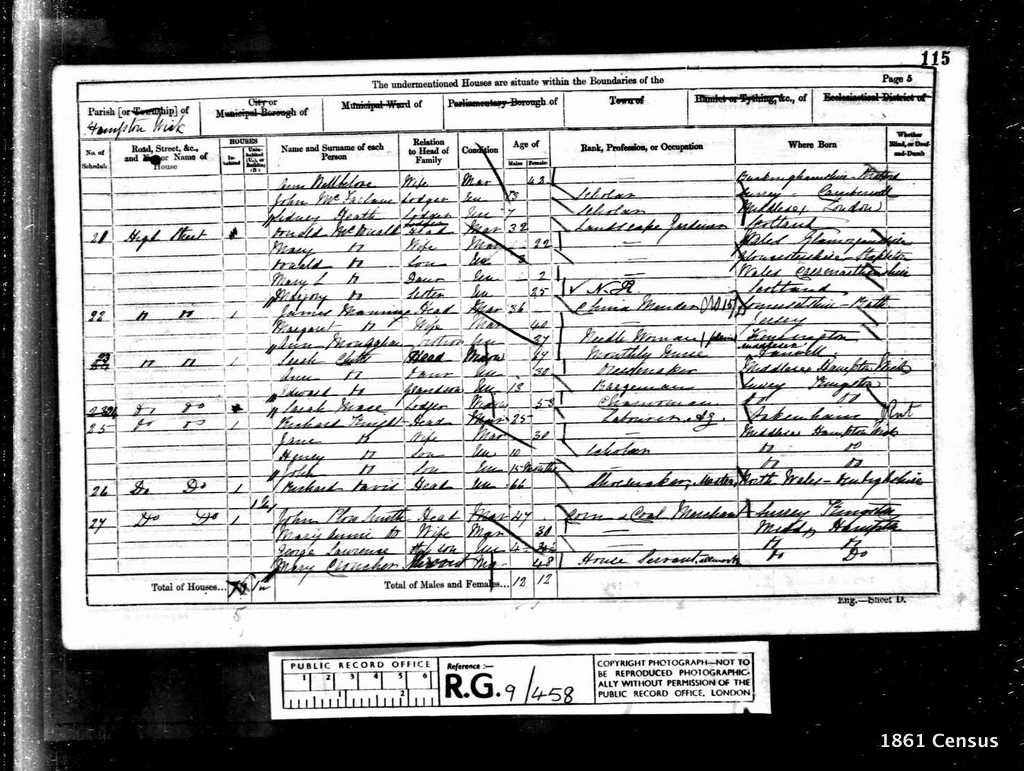 115
The undermentioned Houses are situate within the Boundaries of the Page 5
Parish [or Township] of City or Municipal Borough of Municipal Ward of Parliamentary Borough of Town of Hamlet or Tything, &c., of Ecclesiastical District of
Hampton Wick
No. of Schedule Road, Street, &c., and No. or Name of House HOUSES Inhabited Uninhabited (U.), or Building (B.) Name and Surname of each Person Relation to Head of Family Condition Age of Males Females Rank, Profession, or Occupation Where Born Whether Blind, or Deaf-and-Dumb
Wife Mar 42 Buckinghamshire
John Mc Farlane Lodger Un 13 Scholar Surrey Camberwell
Sidney Heath Lodger Un 7 Scholar Middlesex London
21 High Street Donald McDonald Head Mar 32 Landscape Gardener Scotland
Mary Do Wife Mar 22 Wales Glamorganshire
Donald Do Son Un 3 Gloucestershire
Mary L Do Daur Un 2 Wales
Do Sister Un 25 N. K Scotland
22 Do Do 1 James Manning Head Mar 36 China Mender Somersetshire Bath
Margaret Do Wife Mar 40 Jersey
Ann Un 27 Needle Woman Kensington
23 Do Do 1 Head 64 Monthly Nurse
Ann Do Daur Un 30 Dressmaker Middlesex Hampton Wick
Edward Do Grandson Un 13 Bargeman Surrey Kingston
24 Do Do Sarah Lodger 53 Charwoman Do Do
25 Do Do 1 Richard Knight Head Mar 25 Labourer Ag. Kent
Jane Do Wife Mar 30 Middlesex Hampton Wick
Henry Do Son Un 10 Scholar Do Do
John Do Son Un 15 Months Do Do
26 Do Do 1 Richard David Head Un 66 Shoemaker, Master North Wales Denbighshire
27 Do Do 1 John Plow Smith Head Mar 47 Corn & Coal Merchant Surrey Kingston
Mary Annie Do Wife Mar 30 Middx Hampton
George Lawrence Son Un 4 Do Do
Mary Croucher Servant 48 House Servant Do Do
Total of Houses... Total of Males and Females... 12 12
Eng.—Sheet D.
PUBLIC RECORD OFFICE
1 2 3 4 5 6
1 2
Reference :—
R.G. 9/458
COPYRIGHT PHOTOGRAPH—NOT TO
BE REPRODUCED PHOTOGRAPHIC-
ALLY WITHOUT PERMISSION OF THE
PUBLIC RECORD OFFICE, LONDON
1861 Census